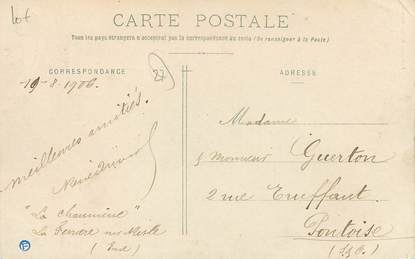 Lot
CARTE POSTALE
Tous les pays étrangers n'acceptent pas la correspondance au recto (Se renseigner à la Poste)
CORRESPONDANCE
27
ADRESSE
19-8-1906.
meilleures amitiés.
"La chaumine"
La
(
Madame
& Monsieur Guerton
2 rue
Pontoise
(S & O.)